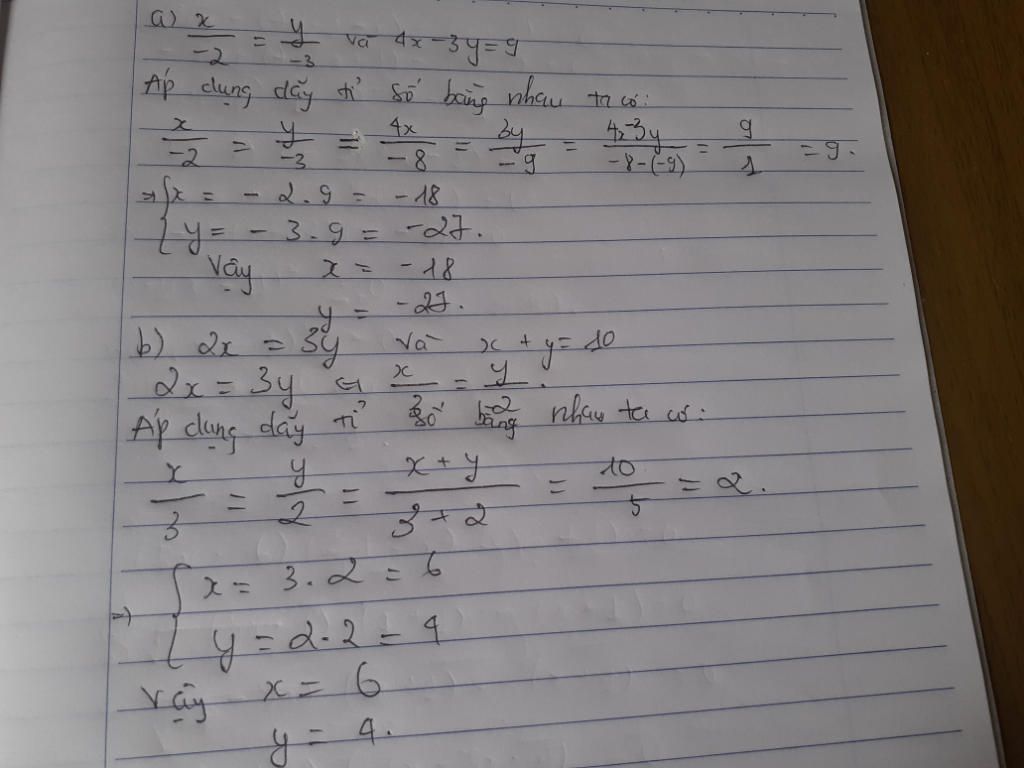 a) x/-2 = y/-3 và 4x-3y=9
Áp dụng dãy tỉ số bằng nhau ta có:
x/-2 = y/-3 = 4x/-8 = 3y/-9 = 4x-3y/-8-(-9) = 9/1 = 9.
⇒ { x = - 2.9 = -18
{ y = - 3.9 = -27.
Vậy x = -18
y = -27.
b) 2x = 3y và x + y = 10
2x = 3y ⇔ x/3 = y/2.
Áp dụng dãy tỉ số bằng nhau ta có:
x/3 = y/2 = x + y/3 + 2 = 10/5 = 2.
⇒ { x = 3.2 = 6
{ y = 2.2 = 4
Vậy x = 6
y = 4.